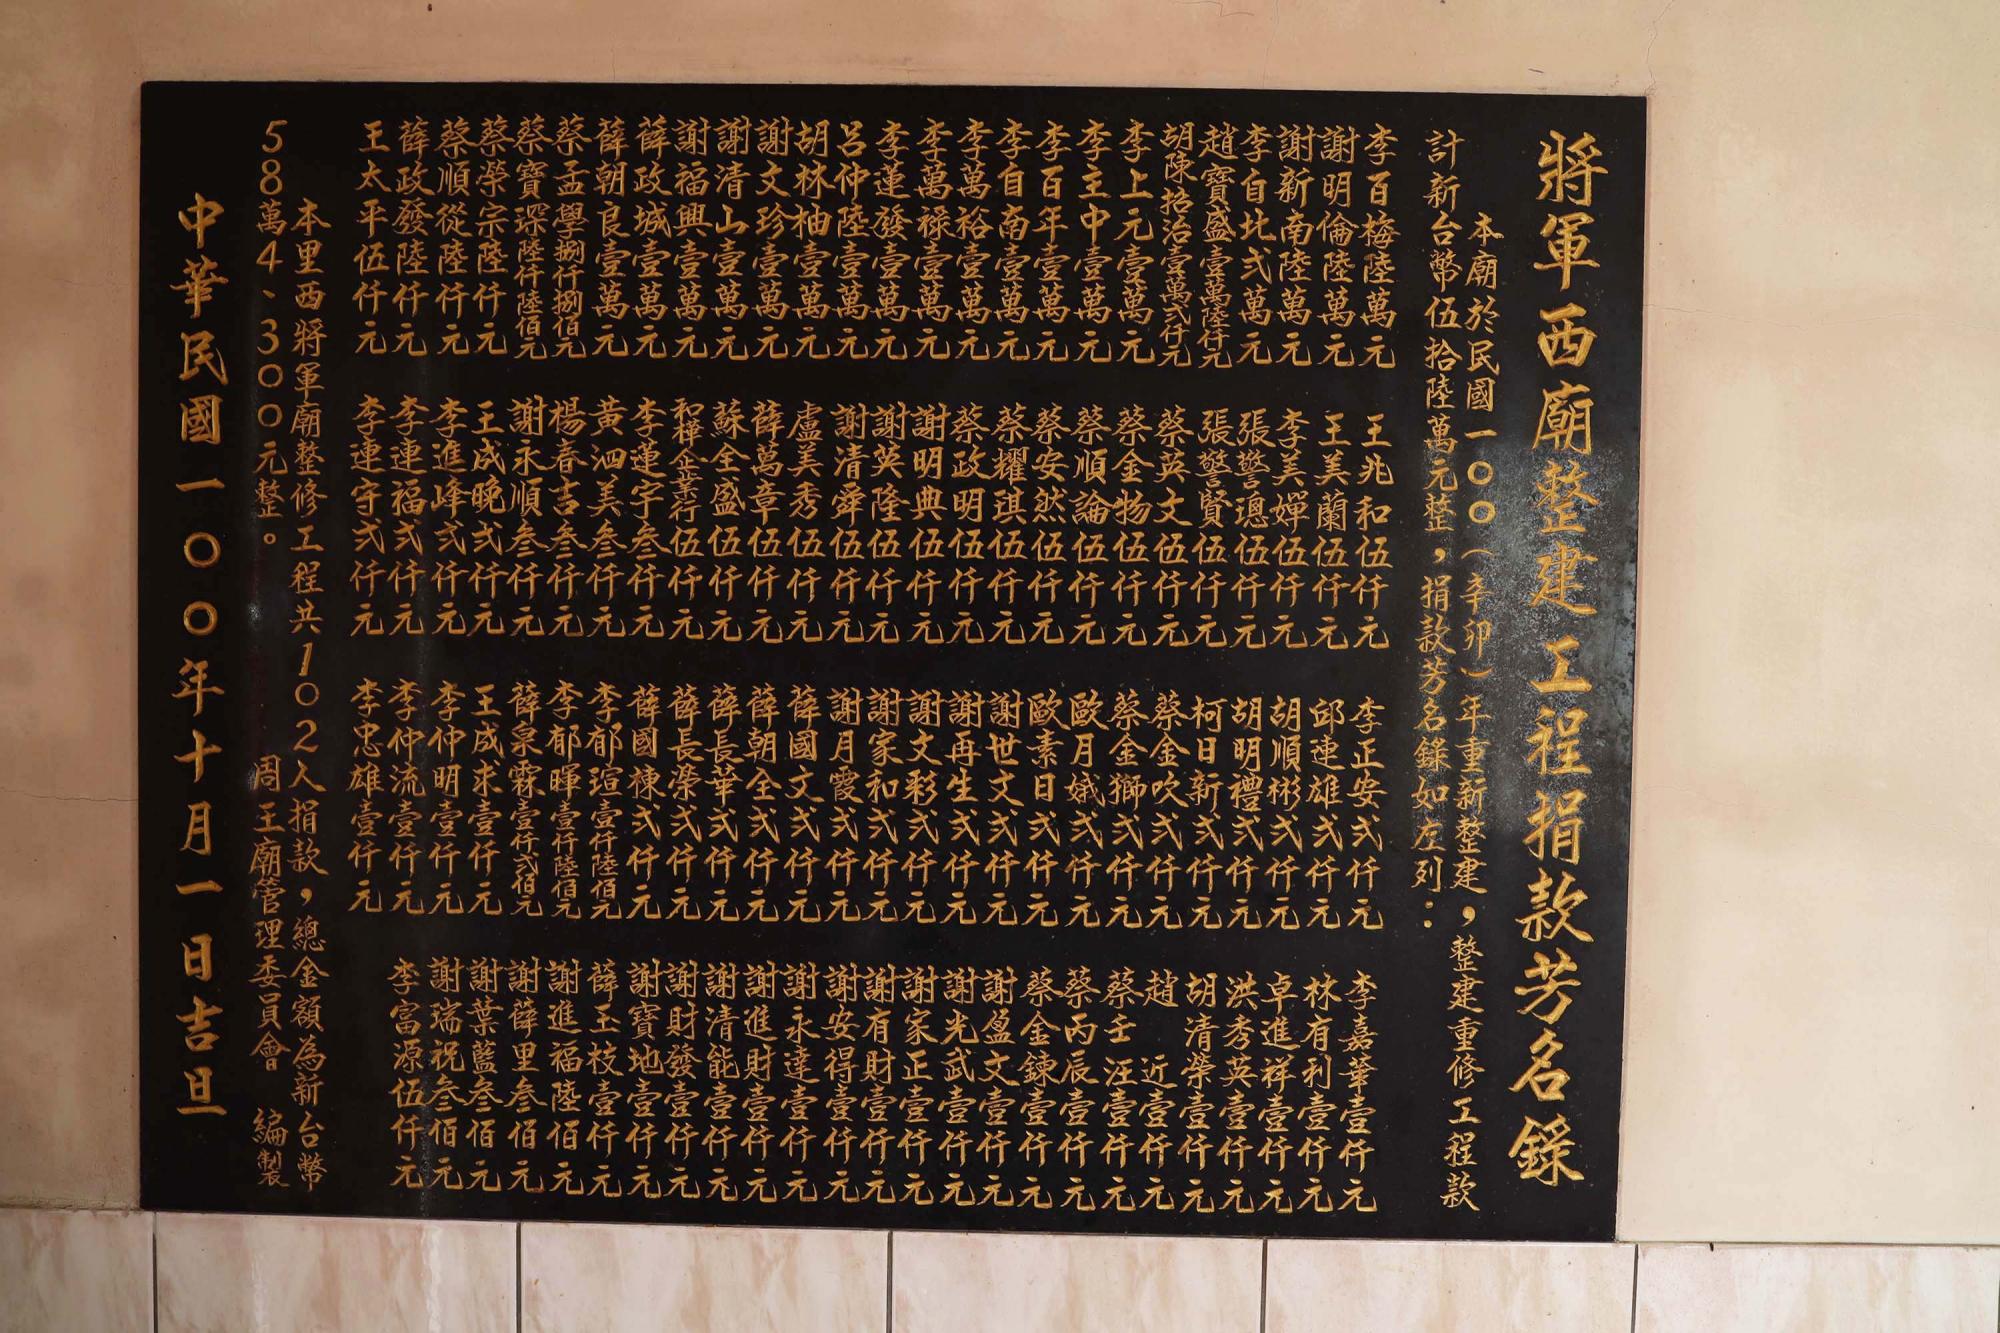 將軍西廟整建工程捐款芳名錄
本廟於民國一〇〇(辛卯)年重新整建,整建重修工程款
計新台幣伍拾陸萬元整,捐款芳名錄如左列:
李百梅陸萬元
謝明倫陸萬元
謝新南陸萬元
李自北弍萬元
趙寶盛壹萬陸仟元
胡陳招治壹萬弍仟元
李上元壹萬元
李主中壹萬元
李百年壹萬元
李自南壹萬元
李萬裕壹萬元
李萬祿壹萬元
李蓮發壹萬元
呂仲陸壹萬元
胡林柚壹萬元
謝文珍壹萬元
謝清山壹萬元
謝福興壹萬元
薛政城壹萬元
薛朝良壹萬元
蔡孟學捌仟捌佰元
蔡寶琛陸仟陸佰元
蔡榮宗陸仟元
蔡順從陸仟元
薛政發陸仟元
王太平伍仟元
王兆和伍仟元
王美蘭伍仟元
李美嬋伍仟元
張警璁伍仟元
張警賢伍仟元
蔡英文伍仟元
蔡金物伍仟元
蔡順論伍仟元
蔡安然伍仟元
蔡耀琪伍仟元
蔡政明伍仟元
謝明典伍仟元
謝英隆伍仟元
謝清舜伍仟元
盧美秀伍仟元
薛萬章伍仟元
蘇全盛伍仟元
和樺企業行伍仟元
李蓮宇叁仟元
黃泗美叁仟元
楊春吉叁仟元
謝永順叁仟元
王成晚弍仟元
李進峰弍仟元
李連福弍仟元
李連守弍仟元
李正安弍仟元
邱連雄弍仟元
胡順彬弍仟元
胡明禮弍仟元
柯日新弍仟元
蔡金吹弍仟元
蔡金獅弍仟元
歐月娥弍仟元
歐素日弍仟元
謝世文弍仟元
謝再生弍仟元
謝文彩弍仟元
謝家和弍仟元
謝月霞弍仟元
薛國文弍仟元
薛朝全弍仟元
薛長華弍仟元
薛長榮弍仟元
薛國棟弍仟元
李郁瑄壹仟陸佰元
李郁暉壹仟陸佰元
薛泉霖壹仟弍佰元
王成來壹仟元
李仲明壹仟元
李仲流壹仟元
李忠雄壹仟元
李嘉華壹仟元
林有利壹仟元
卓進祥壹仟元
洪秀英壹仟元
胡清榮壹仟元
趙近壹仟元
蔡壬汪壹仟元
蔡丙辰壹仟元
蔡金鍊壹仟元
謝盈文壹仟元
謝光武壹仟元
謝家正壹仟元
謝有財壹仟元
謝安得壹仟元
謝永達壹仟元
謝進財壹仟元
謝清能壹仟元
謝財發壹仟元
謝寶地壹仟元
薛王枝壹仟元
謝進福陸佰元
謝薛里叁佰元
謝葉藍叁佰元
謝瑞祝叁佰元
李富源伍仟元
本里西將軍廟整修工程共102人捐款,總金額為新台幣
58萬4、300元整。 周王廟管理委員會 編製
中華民國一〇〇年十月一日吉旦